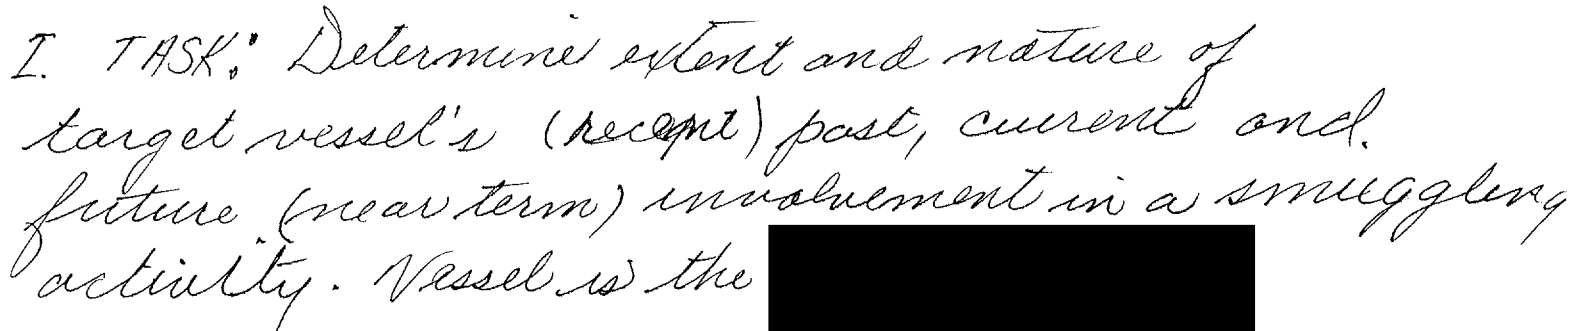 I. TASK: Determine extent and nature of
target vessel's (recent) past, current and.
future (near term) involvement in a smuggling
activity. Vessel is the